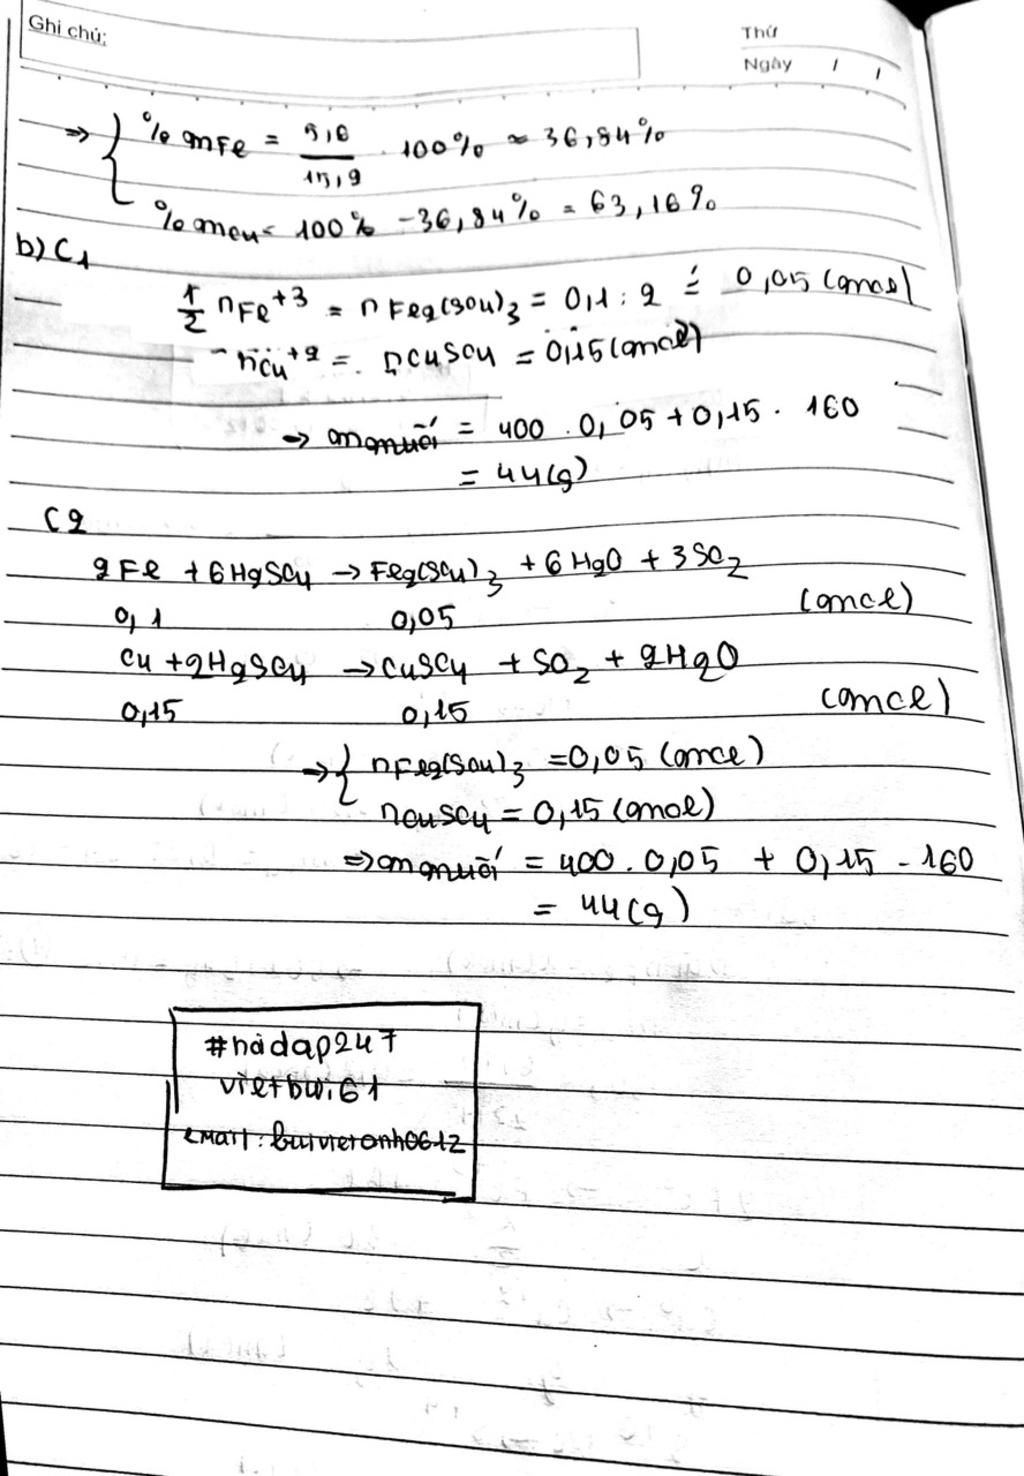 Ghi chú:
Thứ
Ngày / /
=> { % mFe = 5,6/15,2 . 100% ≈ 36,84%
% mCu = 100% - 36,84% = 63,16%
b) C1
1/2 nFe+3 = nFe2(SO4)3 = 0,1 : 2 = 0,05 (mol)
- nCu+2 = nCuSO4 = 0,15 (mol)
-> mmuối = 400 . 0,05 + 0,15 . 160
= 44 (g)
C2
2Fe + 6H2SO4 -> Fe2(SO4)3 + 6H2O + 3SO2
0,1 0,05 (mol)
Cu + 2H2SO4 -> CuSO4 + SO2 + 2H2O
0,15 0,15 (mol)
=> { nFe2(SO4)3 = 0,05 (mol)
nCuSO4 = 0,15 (mol)
=> mmuối = 400 . 0,05 + 0,15 . 160
= 44 (g)
#hỏidap247
vietbui61